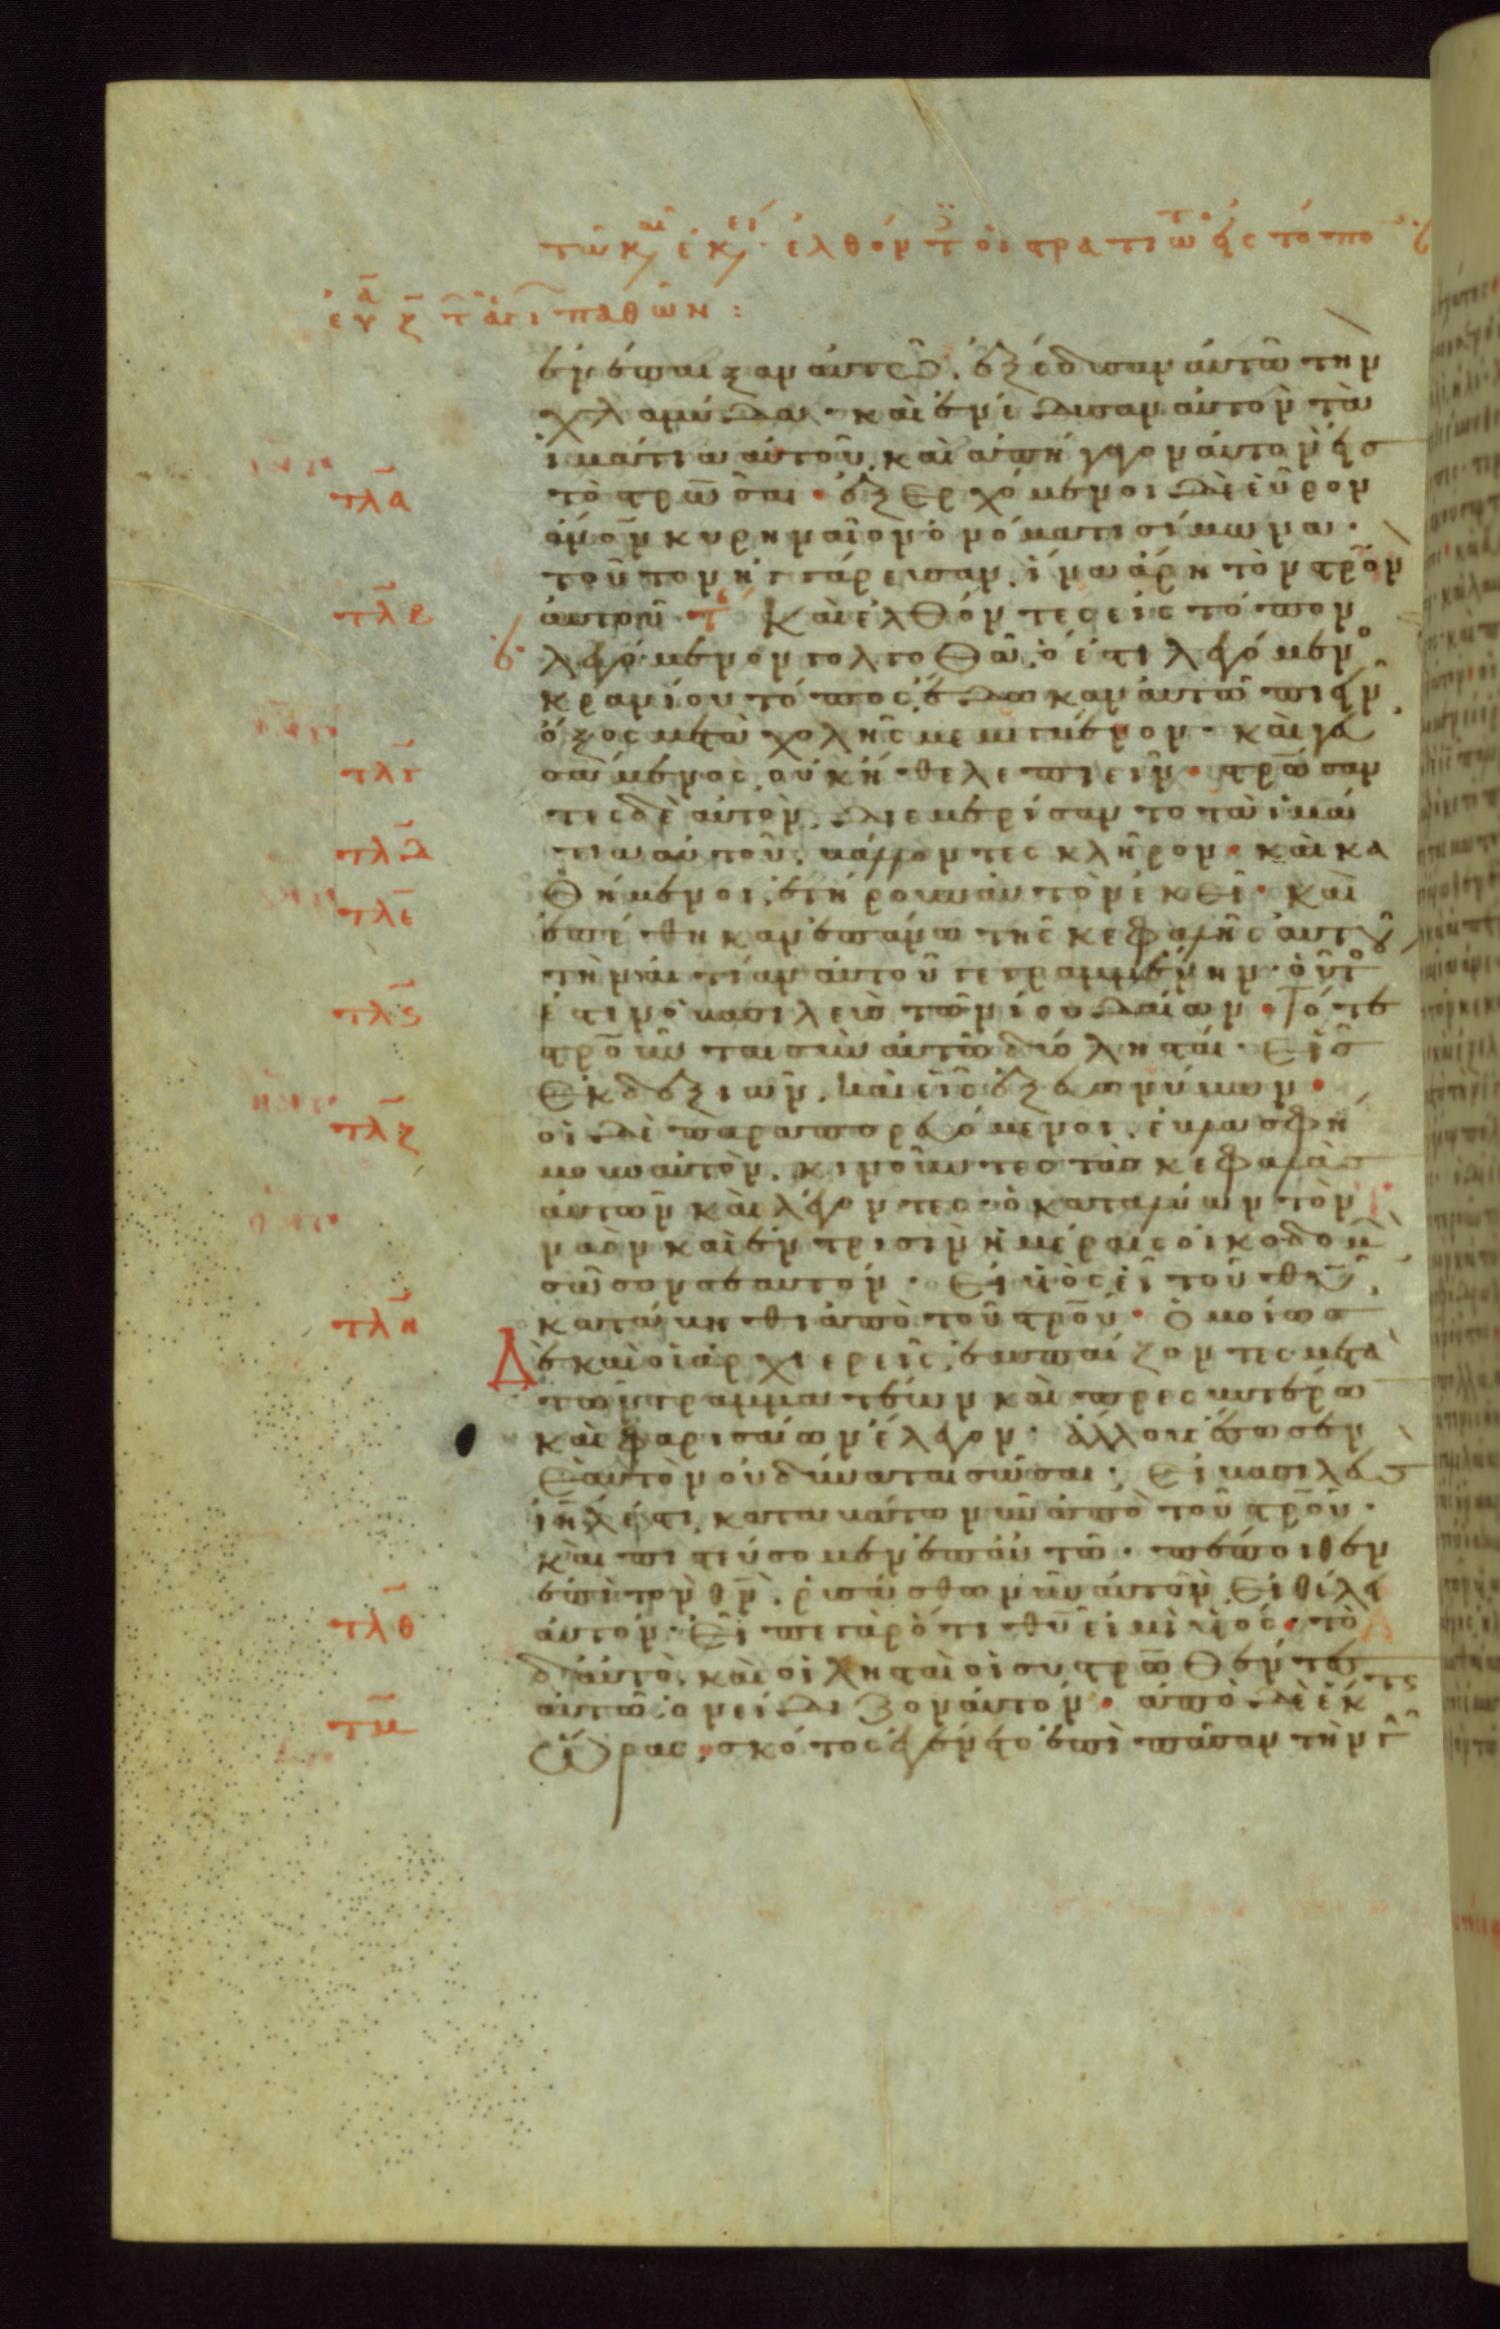 τῶ κ, ἐκ, ἐλθόντ οἱ στρατιῶ εἰς τόπο
εὐα ζ τ ἁγι παθῶν :
ἐνέπαιξαν αὐτῶ. ἐξέδυσαν αὐτῶ την
χλαμύδα. καὶ ἐνέδυσαν αὐτὸν τὰ
ἱμάτια αὐτοῦ, καὶ ἀπήγαγον αὐτὸν εἰσ
τλα τὸ στρω̅σαι. ἐξερχόμενοι δὲ εὗρον
ἄνο̅ν κυρηναῖον ὀνόματι σίμωνα.
τοῦτον ἠγγάρευσαν, ἵνα ἄρη τὸν στρο̅ν
τλβ αὐτοῦ. Καὶ ἐλθόντες εἰς τόπον
λεγόμενον γολγοθᾶ, ὅ ἐστι λεγόμενο
κρανίου τόπος, ἔδωκαν αὐτῶ πιεῖν
ὄξος μετὰ χολῆς μεμιγμένον. καὶ γευ
τλγ σάμενος, οὐκ ἤθελε πιεῖν. στρω̅σαν
τες δὲ αὐτὸν, διεμερίσαντο τὰ ἱμά
τλδ τια αὐτοῦ, βάλλοντες κλῆρον. καὶ κα
θήμενοι, ἐτήρουν αὐτὸν ἐκεῖ. Καὶ
τλε ἐπέθηκαν ἐπάνω τῆς κεφαλῆς αὐτοῦ
τὴν αἰτίαν αὐτοῦ γεγραμμένην. οὗτο
τλς ἐστιν ὁ βασιλεὺσ τῶν ἰουδαίων. Τότε
στρο̅ῦνται σὺν αὐτῶ δύο λησταί. Εἷσ
ἐκ δεξιῶν, καὶ εἷς ἐξ εὐωνύμων.
τλζ οἱ δὲ παραπορευόμενοι, ἐβλασφή
μουν αὐτὸν, κινοῦντεσ τὰσ κεφαλὰσ
αὐτῶν καὶ λέγοντεσ. ὁ καταλύων τὸν
ναὸν καὶ ἐν τρισὶν ἡμέραις οἰκοδομῶ
σῶσον σεαυτόν. Εἰ υἱὸς εἶ τοῦ θυ̅,
τλη κατάβηθι ἀπὸ τοῦ στρο̅ῦ. ὁμοίωσ
Δὲ καὶ οἱ ἀρχιερεῖς, ἐμπαίζοντες μετὰ
τῶν γραμματέων καὶ πρεσβυτέρω
καὶ φαρισαίων ἔλεγον. ἄλλους ἔσωσεν
Ἑαυτὸν οὐ δύναται σῶσαι. Εἰ βασιλεὺσ
ιη̅λ ἐστι, καταβάτω νῦν ἀπὸ τοῦ στρο̅ῦ.
καὶ πιστεύσομεν ἐπ' αὐτῶ. πέποιθεν
ἐπὶ τὸν θν̅, ρυσάσθω νῦν αὐτὸν, Εἰ θέλει
τλθ αὐτόν. Εἶπε γὰρ ὅτι θυ̅ εἰμὶ υἱός. τὸ
δ' αὐτὸ, καὶ οἱ λησταὶ οἱ συστρω̅θέντες
τμ αὐτῶ, ὀνείδιζον αὐτόν. ἀπὸ δὲ ἕκ
της ὥρας, σκότος ἐγένετο ἐπὶ πᾶσαν τὴν γῆ